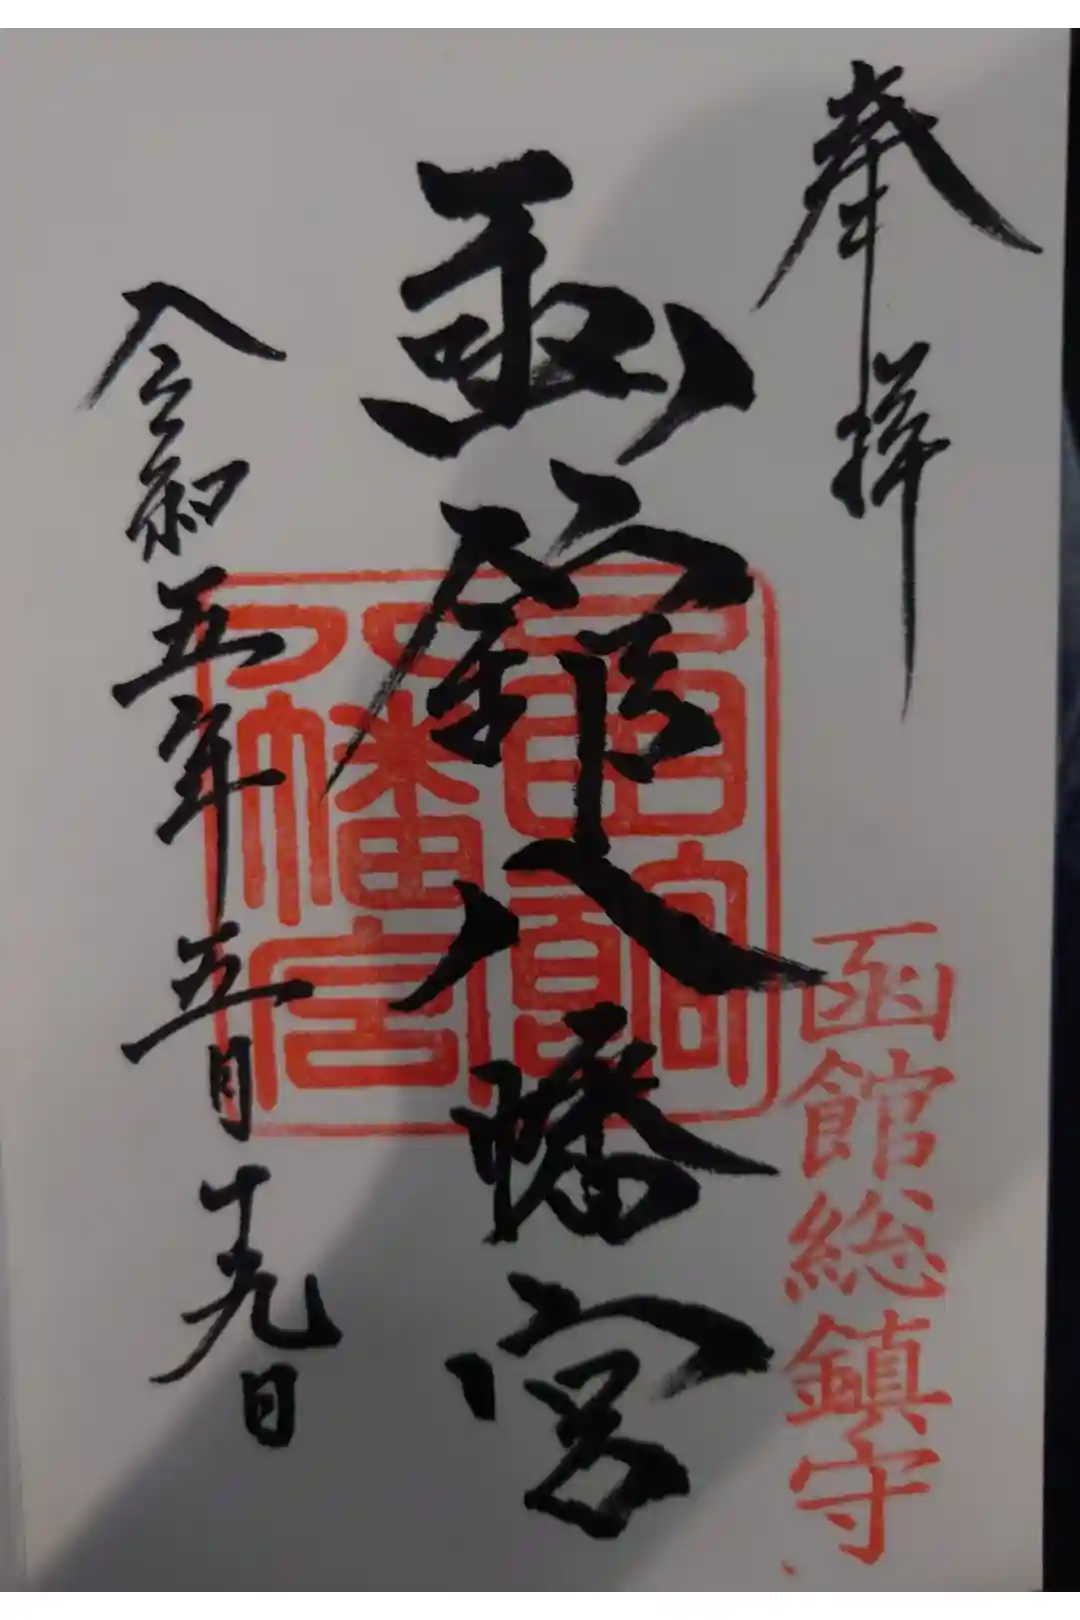 奉拝
函館総鎮守
函館八幡宮
函館
八幡宮
令和五年五月十九日